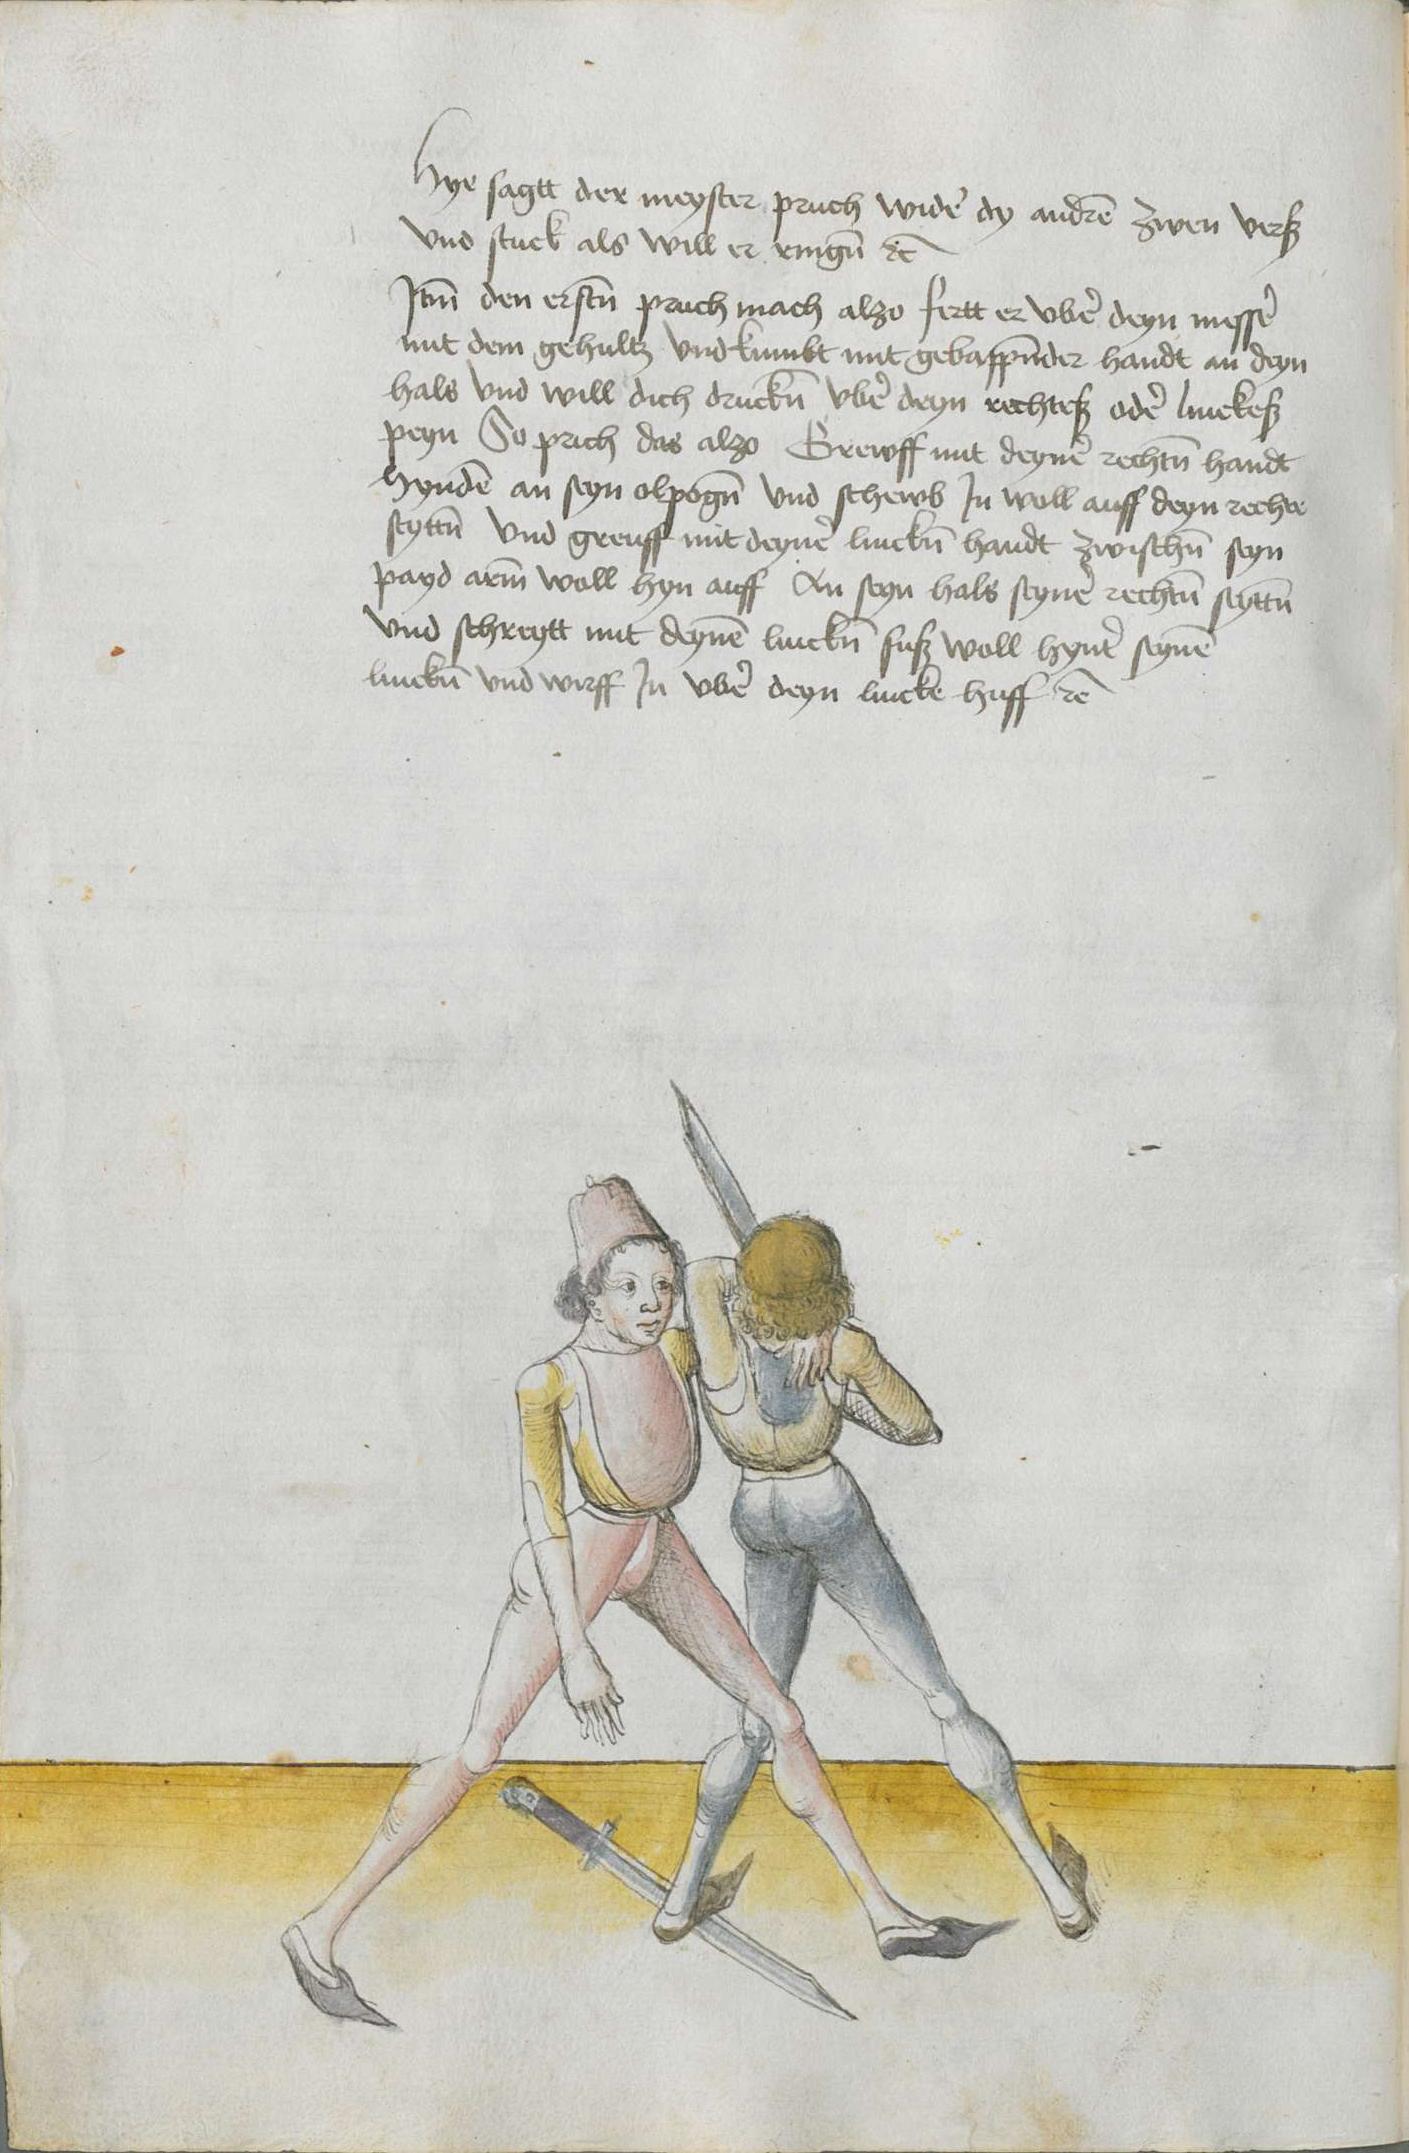 Hye sagtt der meyster pruch widê dy andrē zwen verß
vnd stuck als will er ringñ ⁊c̄
Itm̄ den erstñ pruch mach alzo fertt er vbê deyn messê
mit dem gehultz vnd kumbt mit gebappñder handt an deyn
hals vnd will dich druckñ vbê deyn rechteß odê linckeß
peyn So prich das alzo Greyff mit deynê rechtñ handt
hyndē an seyn olpogñ vnd schewb In woll auff deyn rechte
seyttñ vnd greuff mit deynê linckñ handt zwischñ seyn
payd arm̄ woll hyn auff An seyn hals seynê rechtñ seyttñ
vnd schreytt mit deynē linckñ fuß woll hyntê seynē
linckñ vnd wirff In vbê deyn lincke huff ⁊c̄